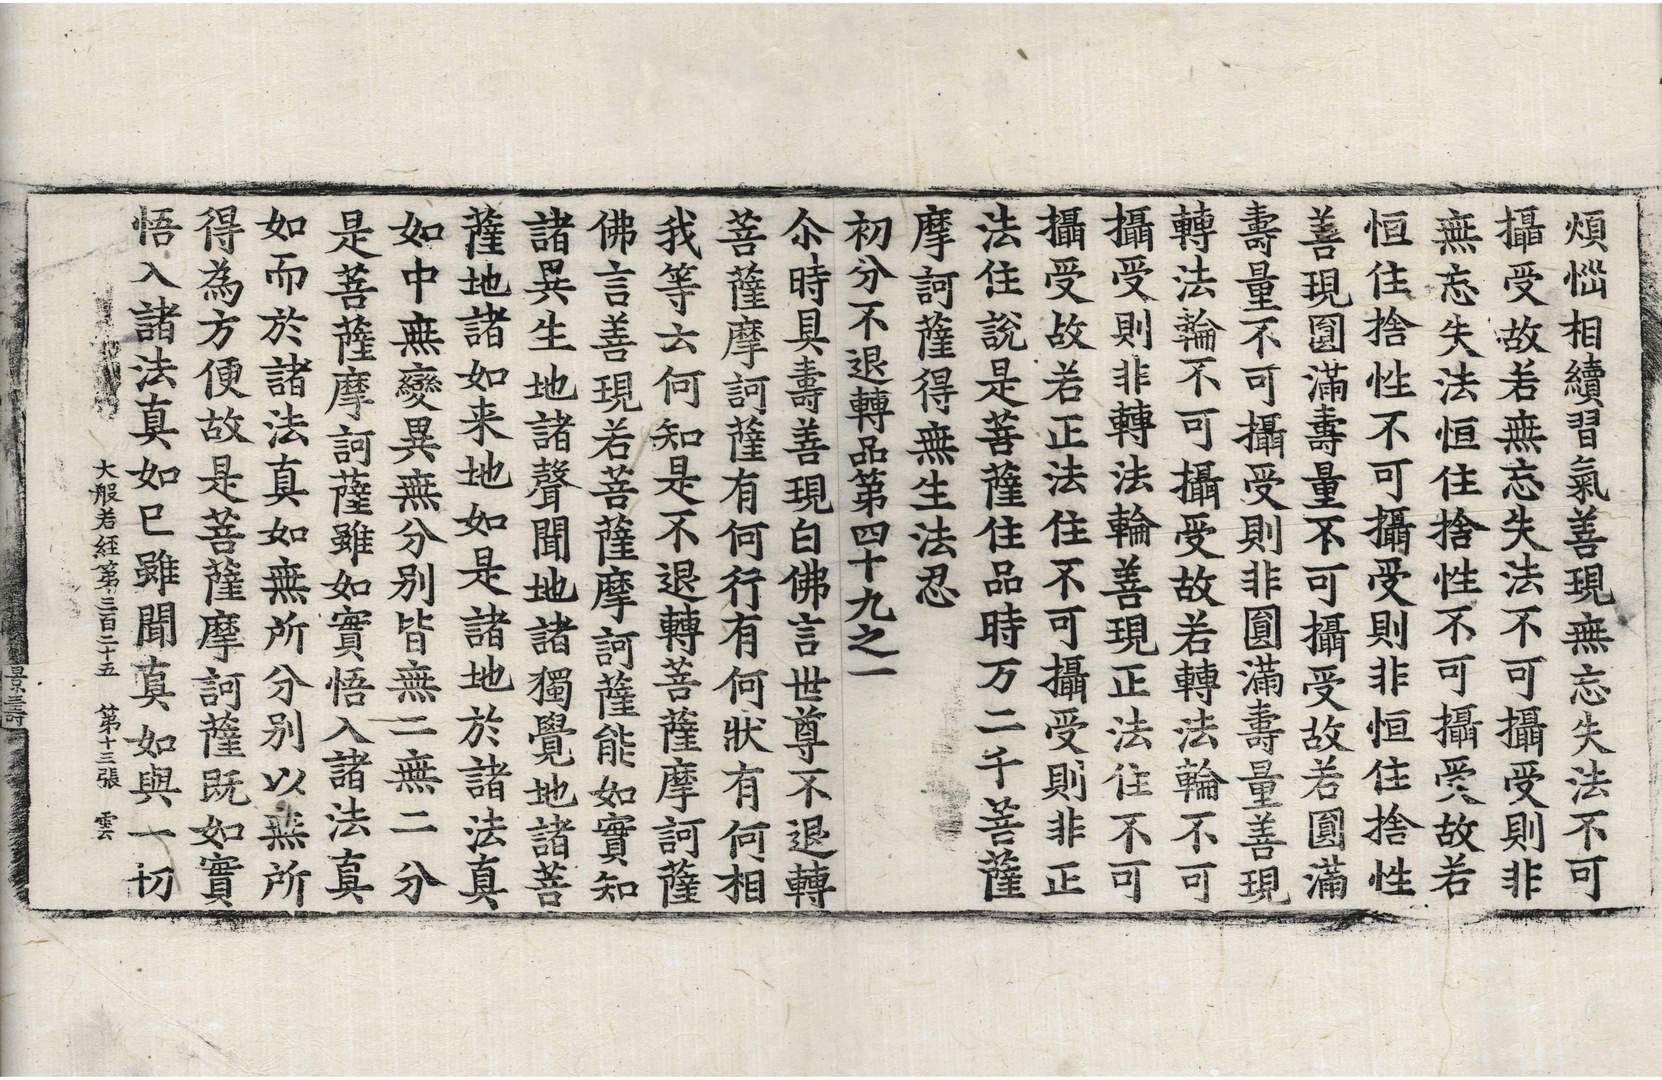 煩惱相續習氣善現無忘失法不可
攝受故若無忘失法不可攝受則非
無忘失法恒住捨性不可攝受故若
恒住捨性不可攝受則非恒住捨性
善現圓滿壽量不可攝受故若圓滿
壽量不可攝受則非圓滿壽量善現
轉法輪不可攝受故若轉法輪不可
攝受則非轉法輪善現正法住不可
攝受故若正法住不可攝受則非正
法住說是菩薩住品時万二千菩薩
摩訶薩得無生法忍
初分不退轉品第四十九之一
尒時具壽善現白佛言世尊不退轉
菩薩摩訶薩有何行有何狀有何相
我等云何知是不退轉菩薩摩訶薩
佛言善現若菩薩摩訶薩能如實知
諸異生地諸聲聞地諸獨覺地諸菩
薩地諸如来地如是諸地於諸法真
如中無變異無分别皆無二無二分
是菩薩摩訶薩雖如實悟入諸法真
如而於諸法真如無所分别以無所
得為方便故是菩薩摩訶薩既如實
悟入諸法真如已雖聞真如與一切
大般若經第三百二十五 第十三張 雲